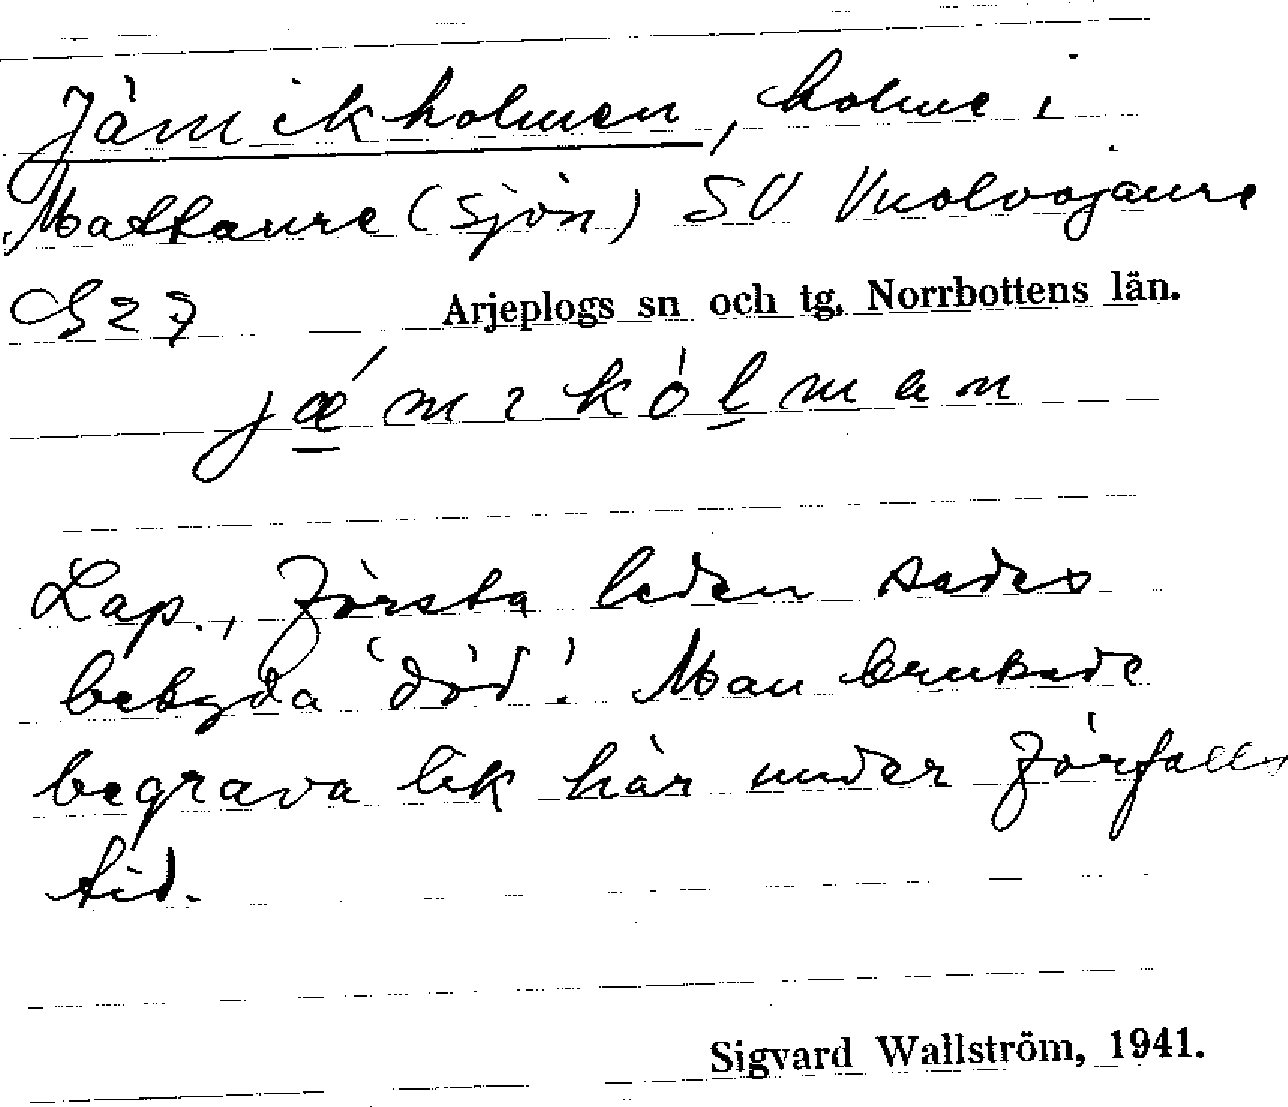 Jämikholmen, holme i
Mattaure (sjön) SV Vuolvojaure
G27 Arjeplogs sn och tg. Norrbottens län.
jǽmikólman
Lap., Första leden sades
betyda 'död'. Man brukade
begrava lik här under förfalls
tid.
Sigvard Wallström, 1941.